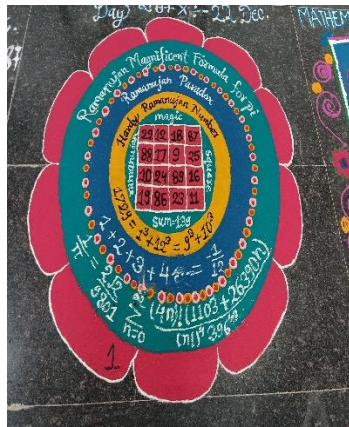 22 Dec.
MATHEM
Ramanujan Magnificent Formula for pi
Ramanujan Paradox
Hardy Ramanujan Number
magic
ramanujan
square
22 12 18 87
88 17 9 25
10 24 89 16
19 86 23 11
sum=139
1729 = 1³+12³ = 9³+10³
1+2+3+4+ = -1/12
1/π = 2√2/9801 ∑ n=0 ∞ (4n)!(1103+26390n)
(n!)⁴ 396⁴ⁿ
1